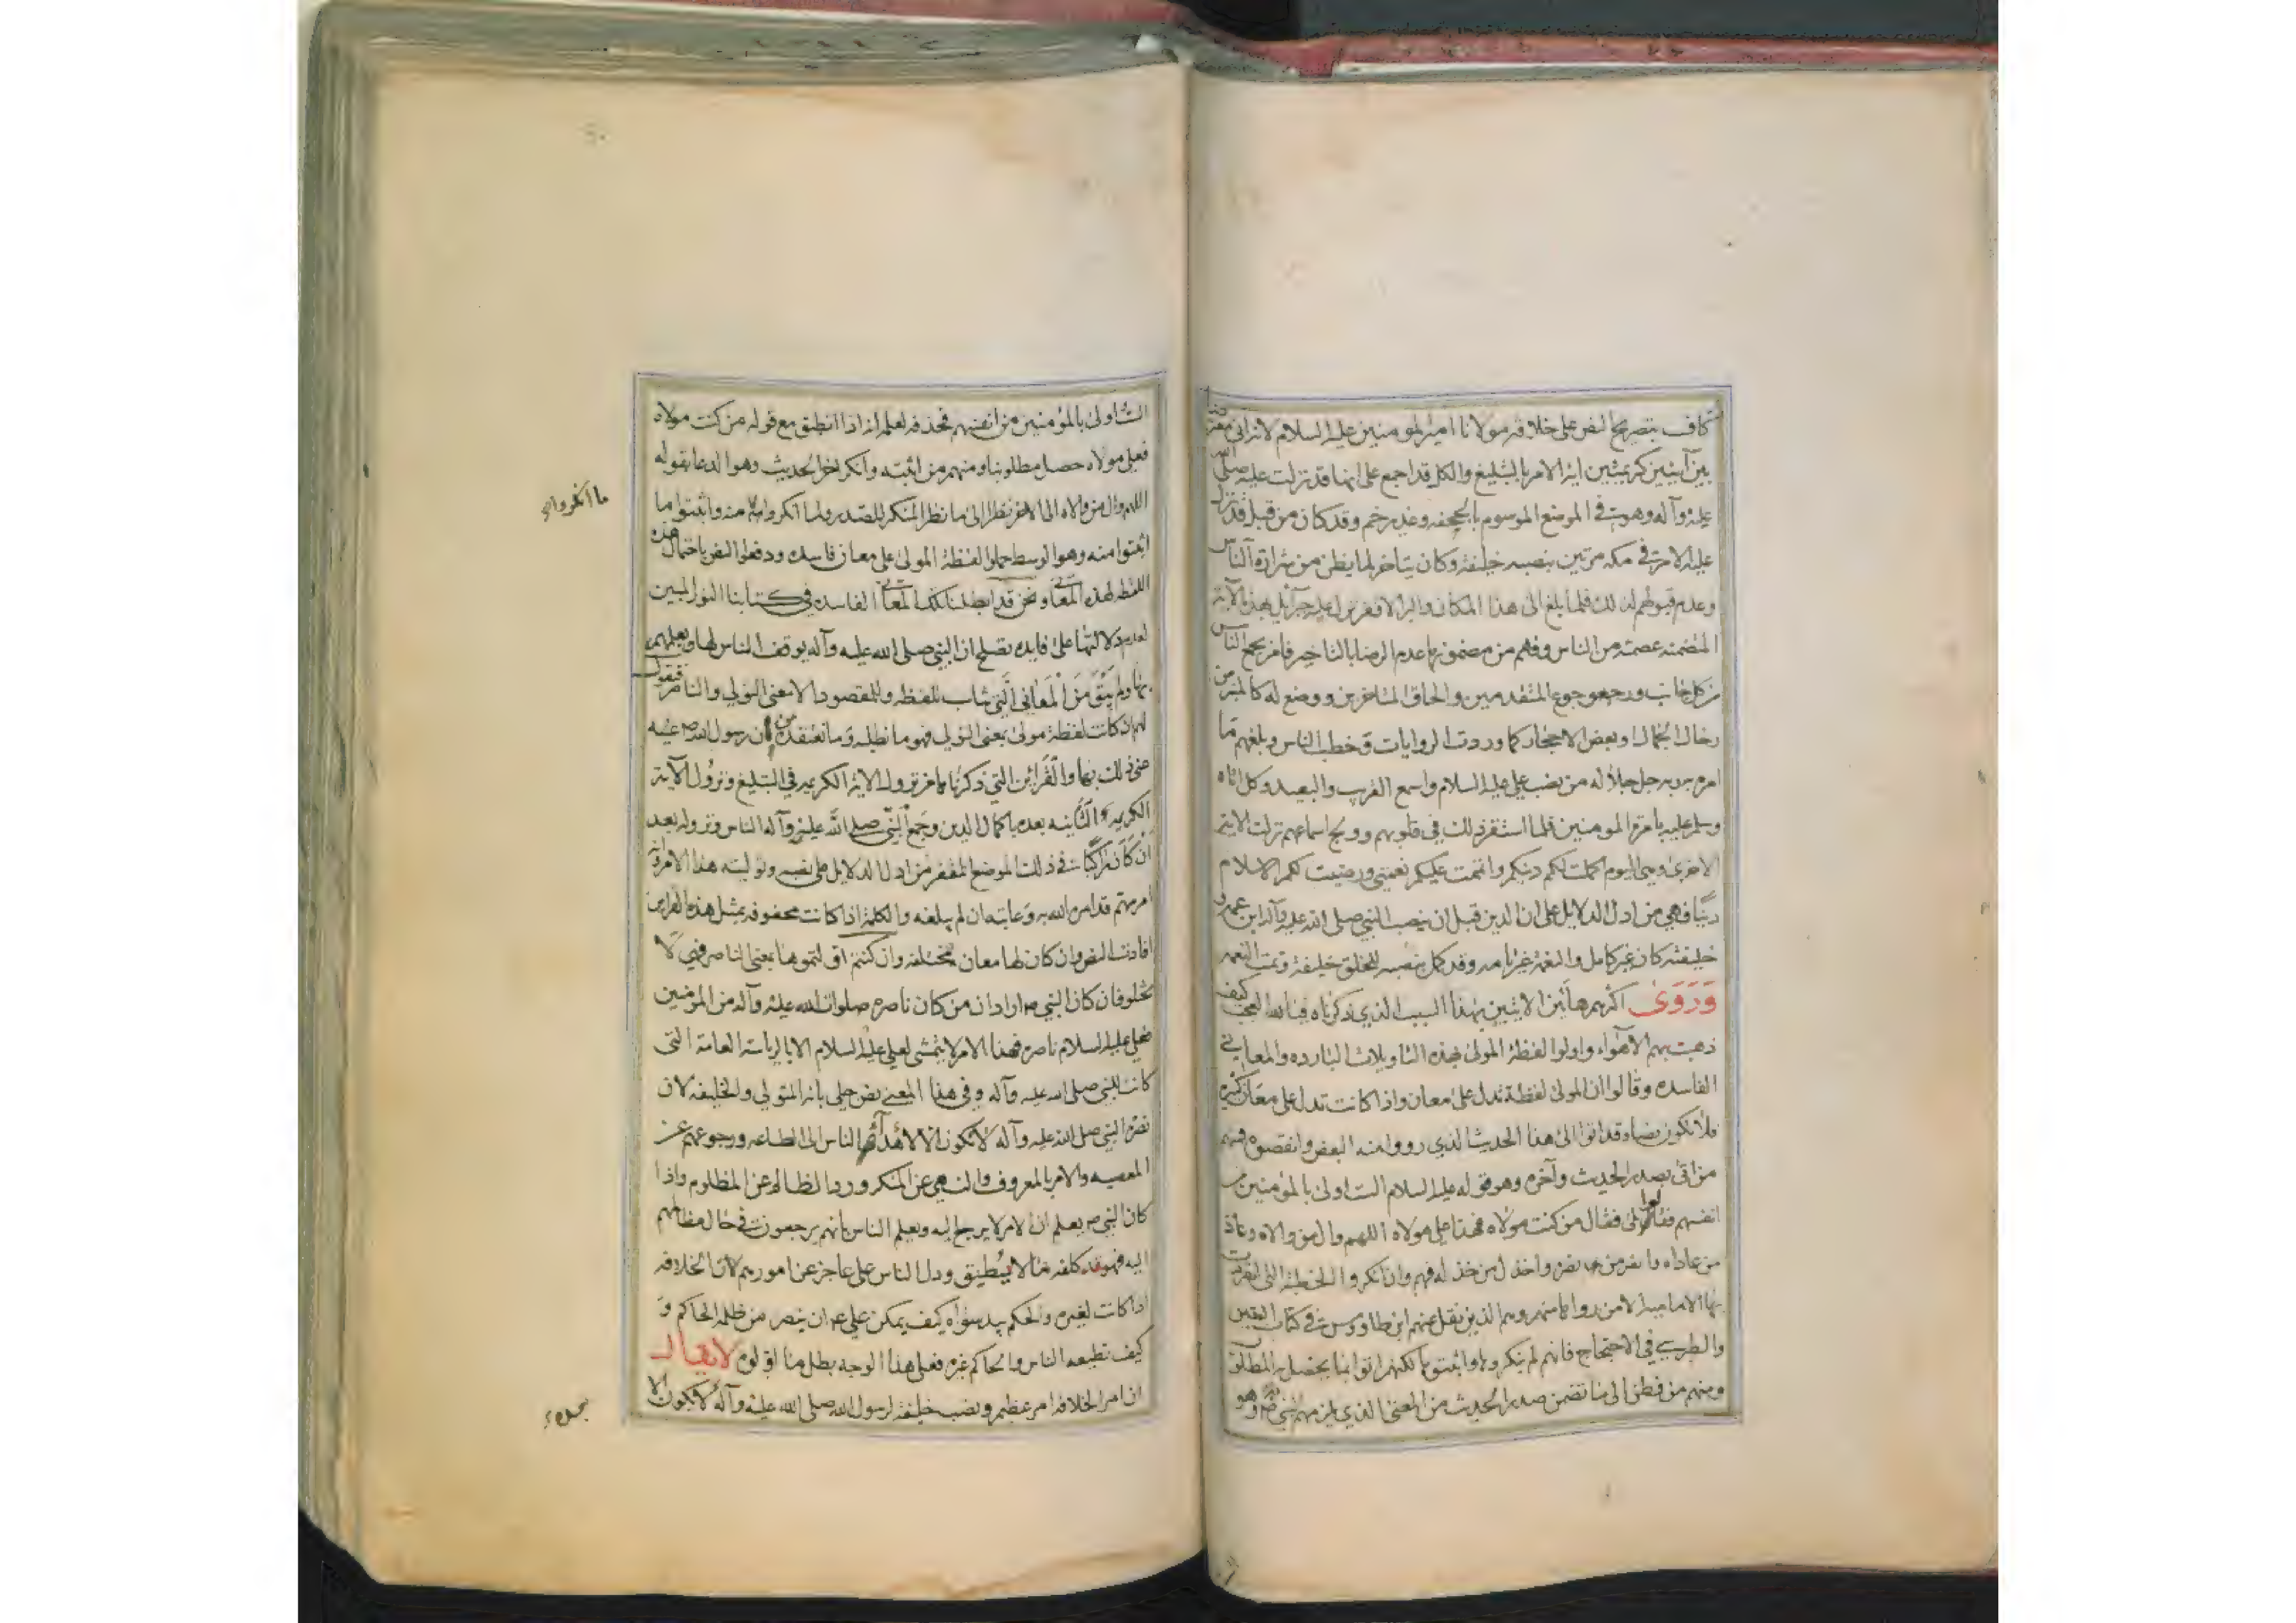 كاف بتصريح النص على خلافة مولانا امير المومنين عليه السلام لانه اتى
بين آيتين كريمتين اية الامر بالتبليغ والكل قد اجمع على انها قد نزلت عليه صلى الله
عليه وآله وهو في الموضع الموسوم بالجحفه وغدير خم وقد كان من قبل قد نزل
عليه الامر في مكه مرتين بنصبه خليفة وكان يتاخر لما يظن من شرارة الناس
وعدم قبولهم لذلك فلما بلغ الى هذا المكان نزل عليه جبرآئيل بهذه الآية
المتضمنه عصمته من الناس وفهم من مضمونها عدم الرضا بالتاخير فامر بجمع الناس
من كل جانب ورجوع المتقدمين والحاق المتاخرين ووضع له كالمنبر من
رحال الجمال او بعض الاحجار كما وردت الروايات فخطب الناس وبلغهم ما
امره به ربه جل جلاله من نصب علي عليه السلام واسمع القريب والبعيد وكل اتاه
وسلم عليه بامرة المومنين فلما استقر ذلك في قلوبهم وولج اسماعهم نزلت الاية
الاخرى وهي اليوم اكملت لكم دينكم واتممت عليكم نعمتي ورضيت لكم الاسلام
دينا فهي من ادل الدلايل على ان الدين قبل ان ينصب النبي صلى الله عليه وآله ابن عمه
خليفته كان غير كامل والنعمة غير تامه وقد كمل بنصبه للخلق خليفة وتمت النعمه
وَرَوَى اكثرهم هاتين الايتين بهذا السبب الذي ذكرناه فيالله العجب كيف
ذهبت بهم الاهوآء واولوا لفظة المولى بهذه التاويلات البارده والمعاني
الفاسده وقالوا ان المولى لفظة تدل على معان واذا كانت تدل على معان كثيرة
فلا تكون نصا وقد اتوا الى هذا الحديث الذي رووا منه البعض وانقصوه فمنهم
من اتى بصدر الحديث وآخره وهو قوله عليه السلام الست اولى بالمؤمنين من
انفسهم فقالوا بلى فقال من كنت مولاه فهذا علي مولاه اللهم وال من والاه وعاد
من عاداه وانصر من نصره واخذل من خذله فهم وان انكروا الخطبة التي انفردت
بها الاماميه الا من رواها منهم وهم الذين نقل عنهم ابن طاووس في كتاب اليقين
والطبرسي في الاحتجاج فانهم لم ينكروها واثبتوها لكنهم اتوا بما يحصل به المطلوب
ومنهم من فطن الى ما تضمن صدر الحديث من المعنى الذي يلزمهم وهو
الست اولى بالمؤمنين من انفسهم فحذفه لعلمه انه اذا انطبق مع قوله من كنت مولاه
فعلي مولاه حصل مطلوبنا ومنهم من اثبته وانكر اخر الحديث وهو الدعا بقوله
اللهم وال من والاه الى الاخر نظرا الى ما نظر المنكر للصدر ولما انكروا منه واثبتوا ما
ما انكروا
اثبتوا منه وهو الوسط حملوا لفظة المولى على معان فاسده ودفعوا النص باحتمال هذه
اللفظه لهذه المعاني ونحن قد ابطلنا تلك المعاني الفاسده في كتابنا النور المبين
لعدم دلالتها على فايده تصلح ان النبي صلى الله عليه وآله يوقف الناس لها ويعلمهم
بها ولم يَبْقَ مِنَ الْمَعَانِي الَّتِي تناسب اللفظه والمقصود الا معنى الولي والناصر فنقول
لهم ان كانت لفظة مولى بمعنى الولي فهو ما نطلبه وما نعتقده من ان رسول الله ص
عنى ذلك بها والقرائن التي ذكرناها من نزول الاية الكريمه في التبليغ ونزول الآية
الكريمه الثانيه بعده باكمال الدين وجمع النبي صلى الله عليه وآله الناس ونزوله بعد
ان كان راكبا في ذلك الموضع المقفر من ادل الدلايل على نصبه وتوليته هذا الامر
امر مهم قد امره الله به وعاتبه ان لم يبلغه والكلمة اذا كانت محفوفه بمثل هذه القراين
افادت النص وان كان لها معان مختلفه وان كنتم اولتموها بمعنى الناصر فهي لا
تخلو فان كان النبي ص اراد ان من كان ناصره صلوات الله عليه وآله من المؤمنين
فعلي عليه السلام ناصره فهذا الامر لا يتمشى لعلي عليه السلام الا بالرياسة العامة التي
كانت للنبي صلى الله عليه وآله وفي هذا المعنى نص جلي بانه المتولي والخليفه لان
نصرة النبي صلى الله عليه وآله لا تكون الا لاهدائه الناس الى الطاعه ورجوعهم عن
المعصيه والامر بالمعروف والنهي عن المنكر ورد الظالم عن المظلوم واذا
كان النبي ص يعلم ان الامر لا يرجع اليه ويعلم الناس بانهم يرجعون في حال مظالمهم
اليه فهو قد كلفه ما لا يُطيق ودل الناس على عاجز عن امورهم لان الخلافه
اذا كانت لغيره والحكم بيد سواه كيف يمكن علي ع ان ينصر من ظلمه الحاكم و
كيف تطيعه الناس والحاكم غيره فعلى هذا الوجه بطل ما اولوه لا يقال
ان امر الخلافه امر عظيم ونصب خليفة لرسول الله صلى الله عليه وآله لا يكون الا
بمحله